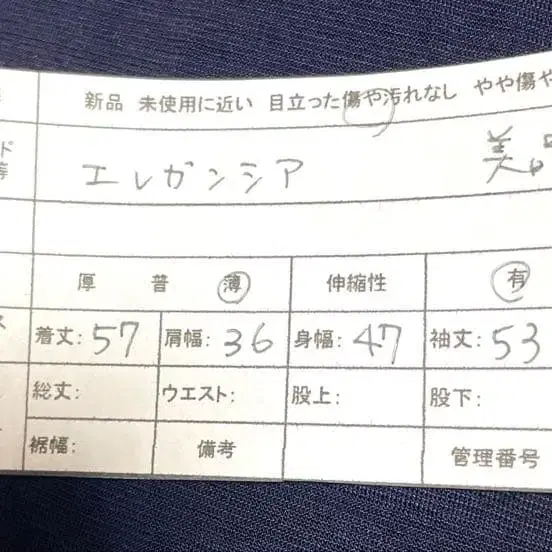 新品 未使用に近い 目立った傷や汚れなし やや傷や
ド エレガンシア 美品
等
厚 普 薄 伸縮性 有
ス 着丈: 57 肩幅: 36 身幅: 47 袖丈: 53
総丈: ウエスト: 股上: 股下:
裾幅: 備考 管理番号